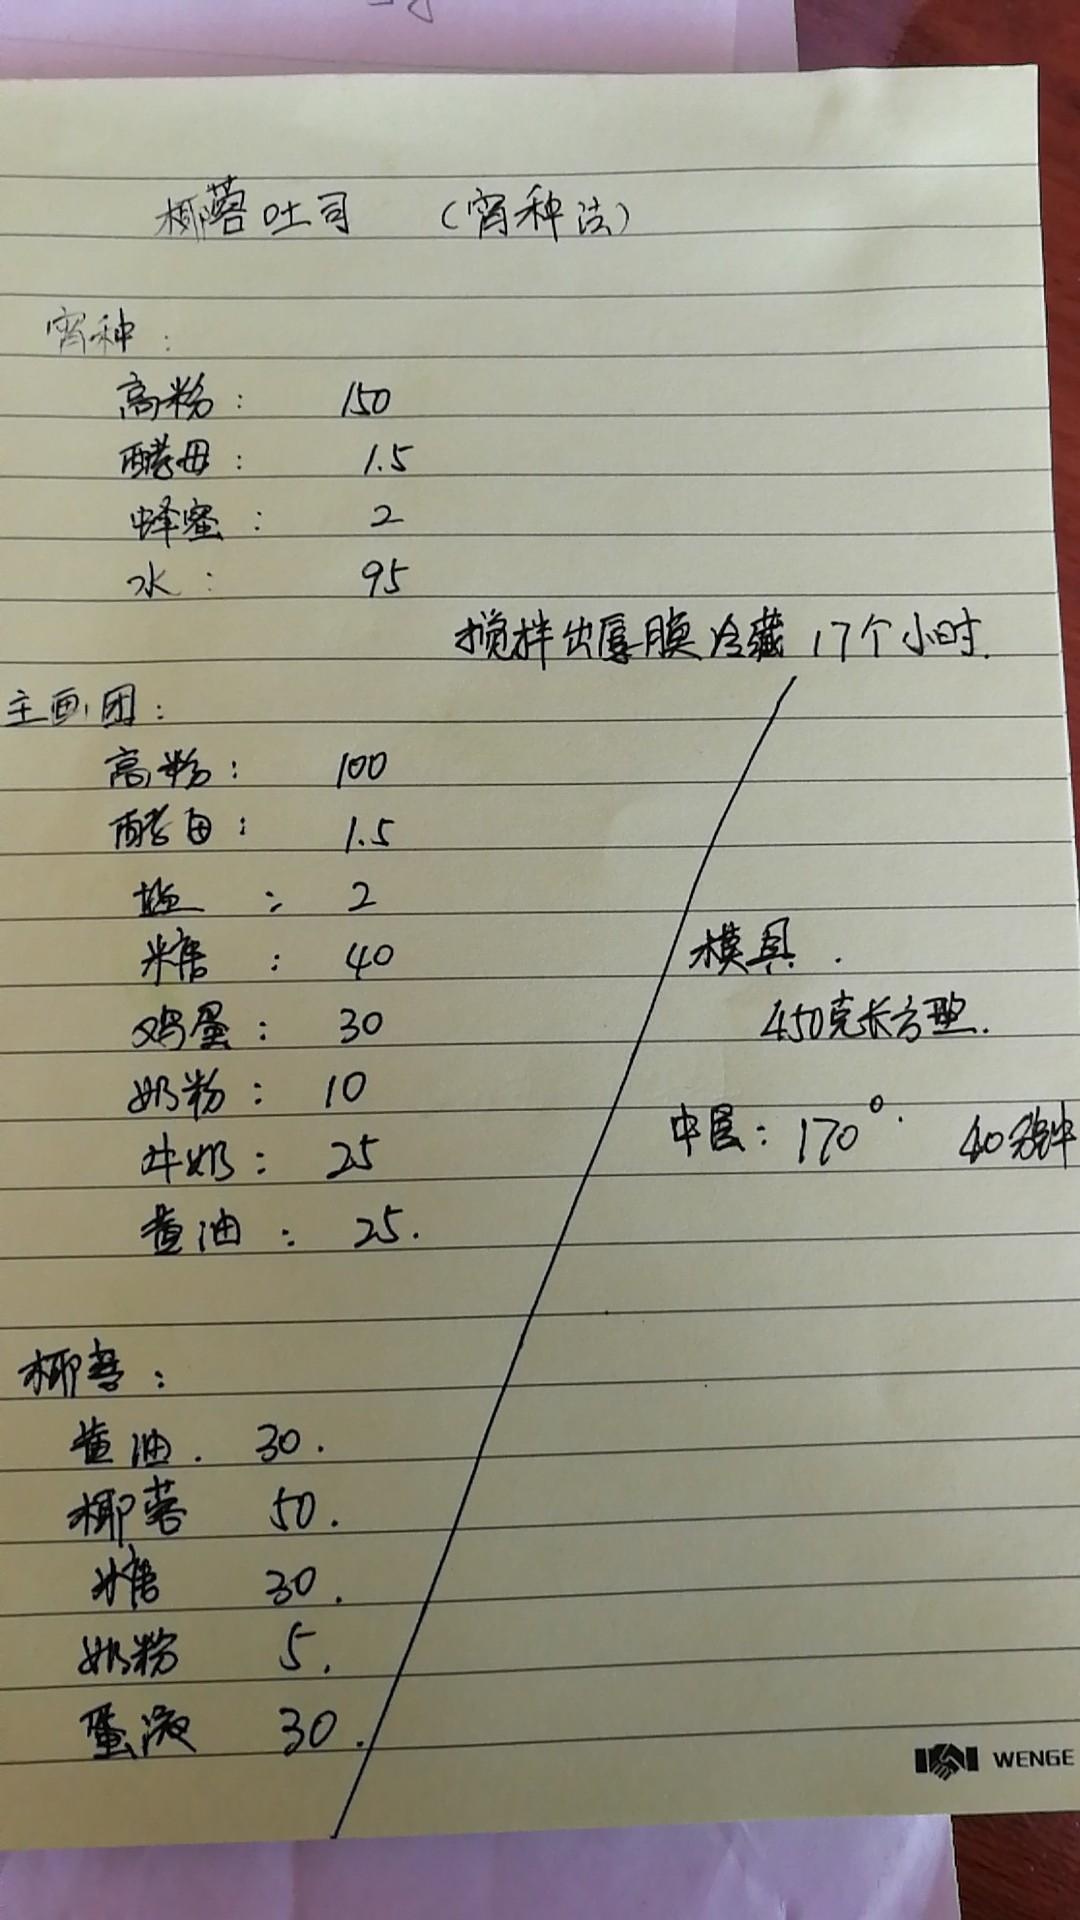 椰蓉吐司 (宵种法)
宵种:
高粉: 150
酵母: 1.5
蜂蜜: 2
水: 95
搅拌出厚膜冷藏 17个小时.
主面团:
高粉: 100
酵母: 1.5
盐: 2
糖: 40
鸡蛋: 30
奶粉: 10
牛奶: 25
黄油: 25.
模具.
450克长方型.
中层: 170°. 40分钟
椰蓉:
黄油. 30.
椰蓉 50.
糖 30.
奶粉 5.
蛋液 30.
WENGE